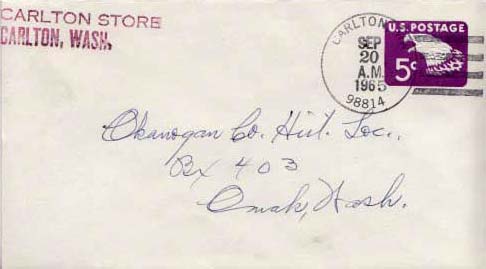 CARLTON STORE
CARLTON, WASH.
CARLTON
SEP
20
A.M.
1965
98814
U.S. POSTAGE
5c
Okanogan Co. Hist. Soc.,
Bx 403
Omak, Wash.